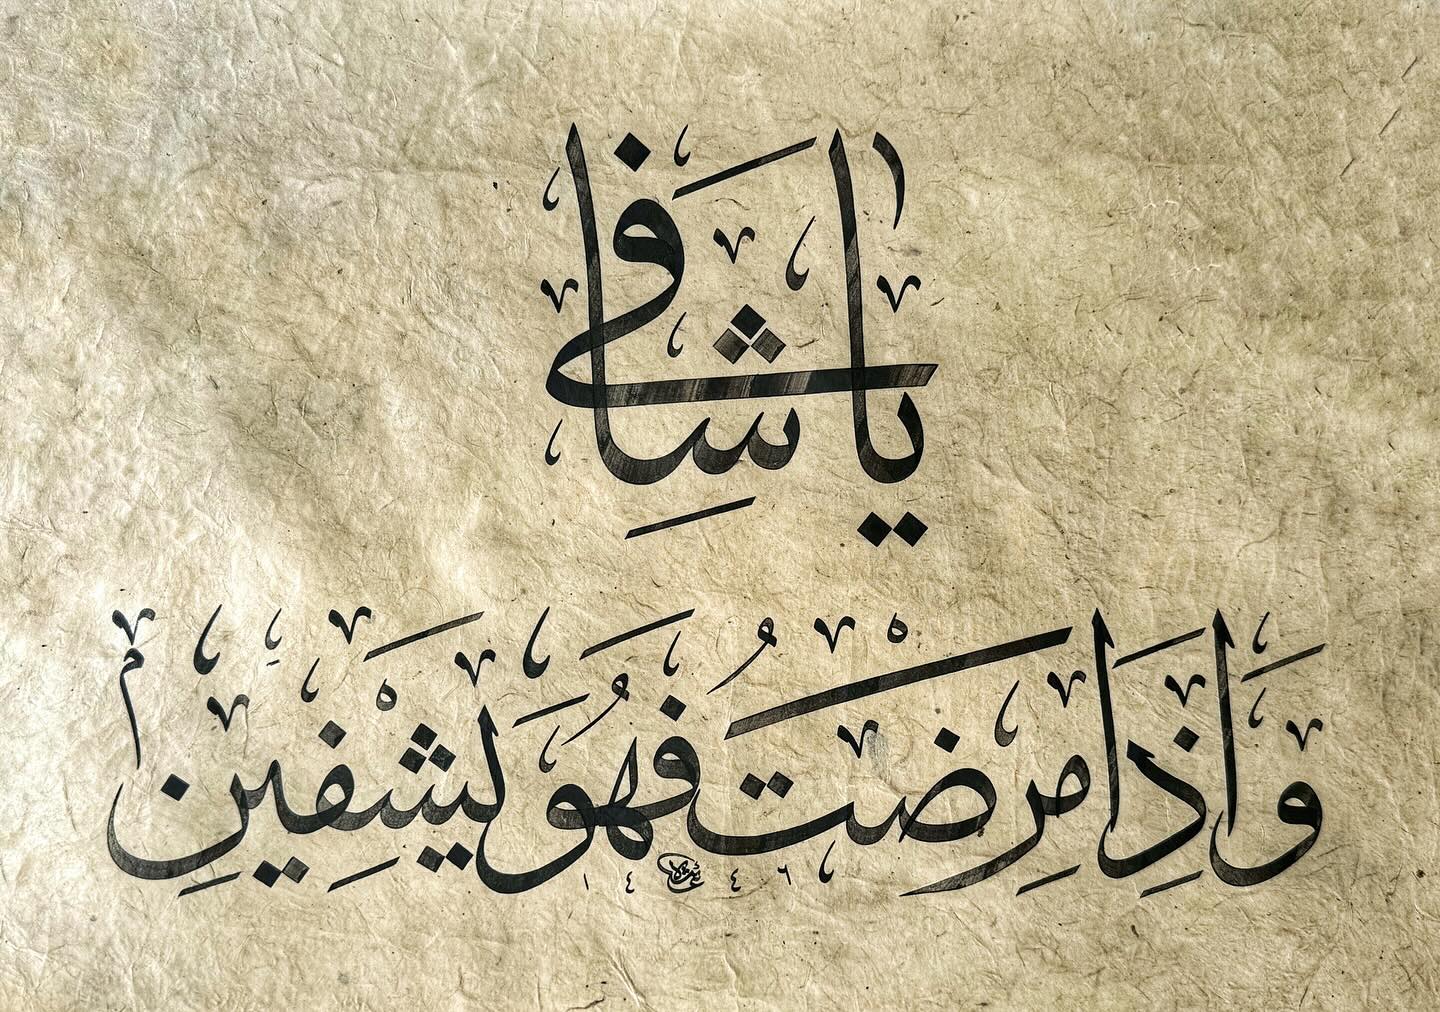 يَا شَافِي
وَإِذَا مَرِضْتُ فَهُوَ يَشْفِينِ
١٤٤٦